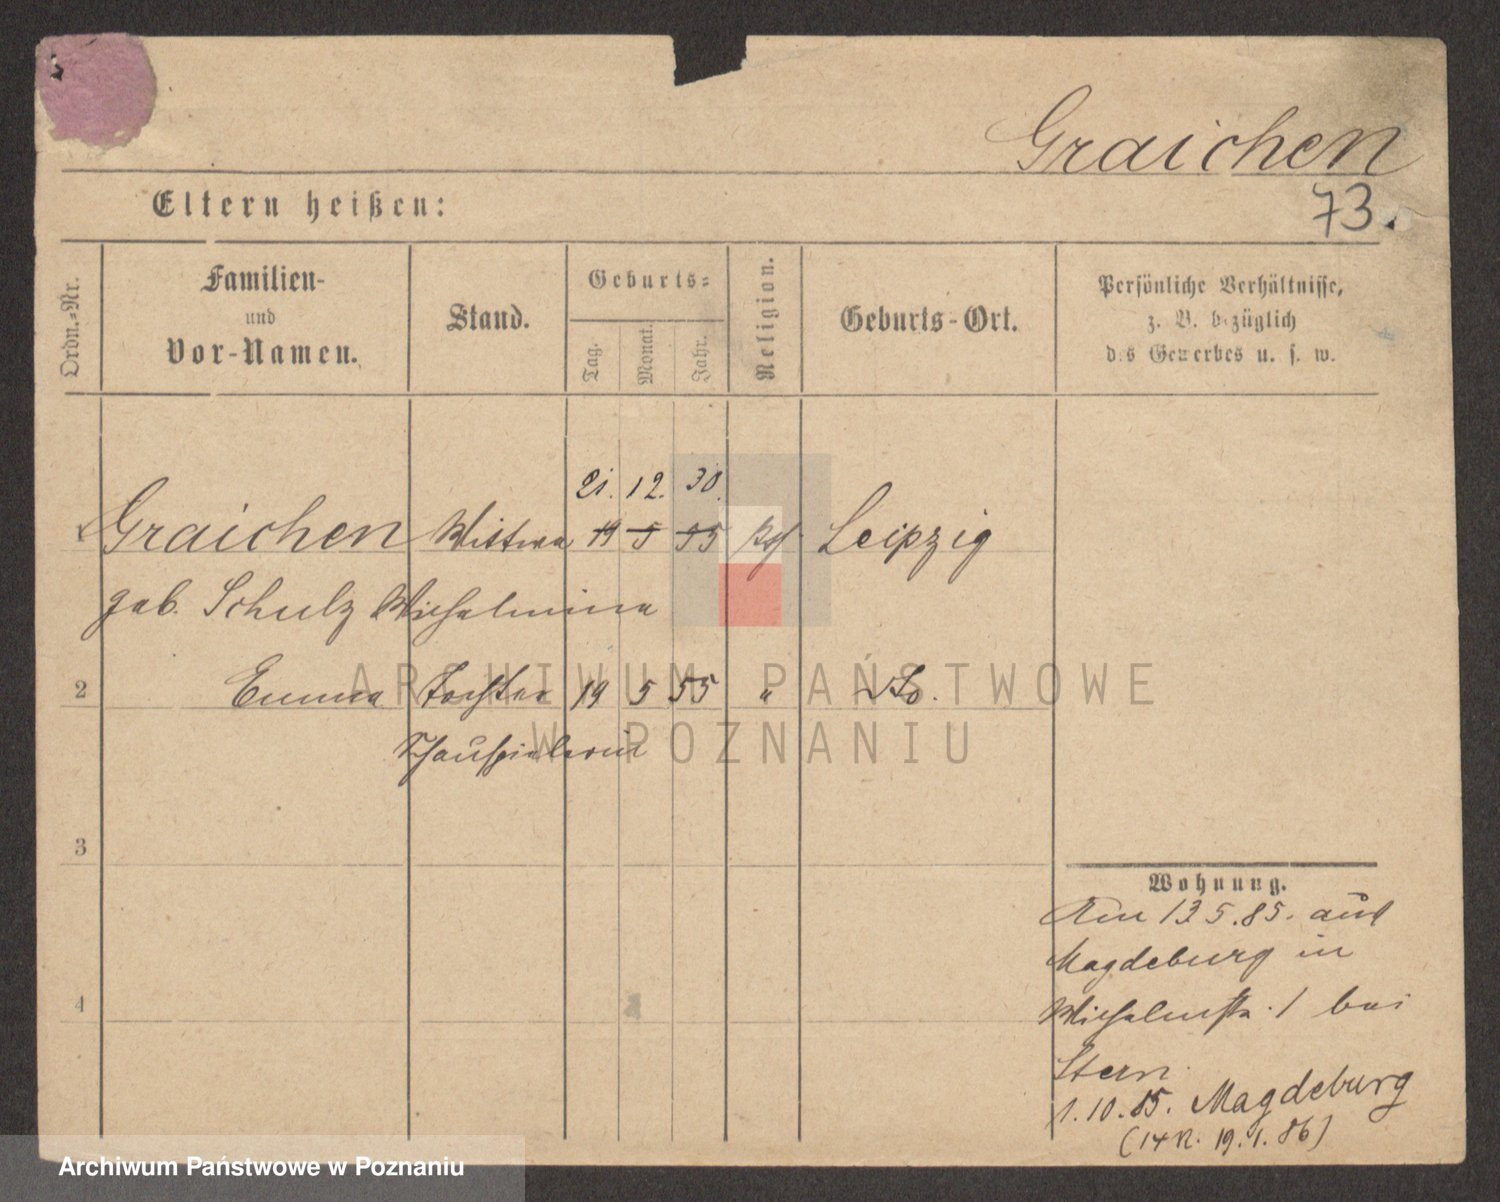 Graichen
73.
Eltern heißen:
Ordn.-Nr.
Familien-
und
Vor-Namen.
Stand.
Geburts-
Tag.
Monat.
Jahr.
Religion.
Geburts-Ort.
Persönliche Verhältnisse,
z. B. bezüglich
des Gewerbes u. s. w.
21. 12. 30.
1 Graichen Wittwe 19 5 55 Leipzig
geb. Schulz Wilhelmine
2 Emma Tochter 19 5 55 " do.
Schauspielerin
3
4
Wohnung.
Am 13.5.85. aus
Magdeburg in
Wilhelmstr. 1 bei
Stern
1.10.85. Magdeburg
(14 R. 19.1.86)
ARCHIWUM PAŃSTWOWE
W POZNANIU
Archiwum Państwowe w Poznaniu